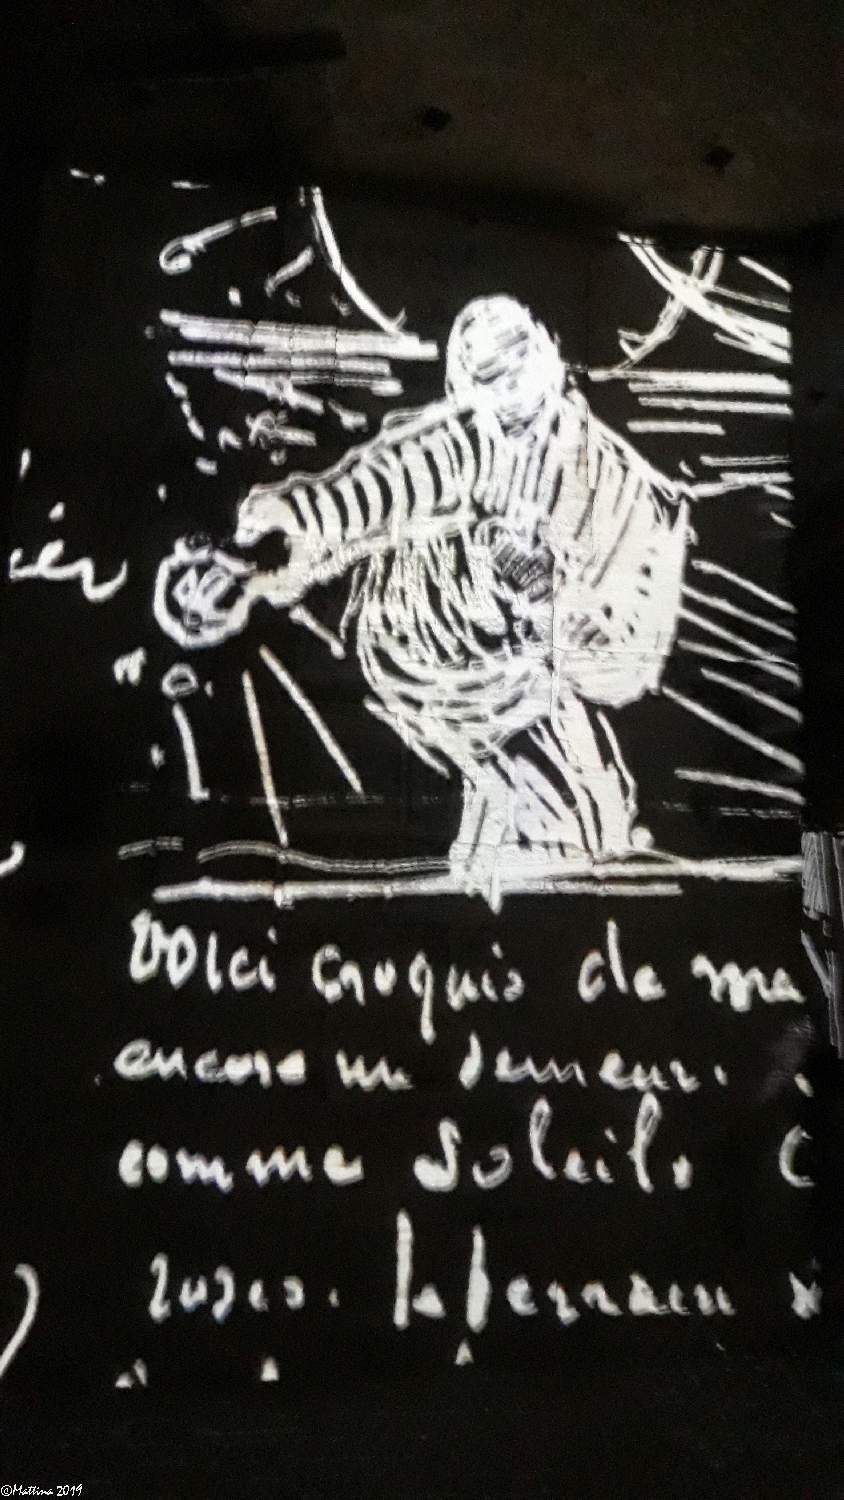 Voici croquis de ma
encore un semeur.
comme Soleil. C
roses. le terrain
©Mattina 2019